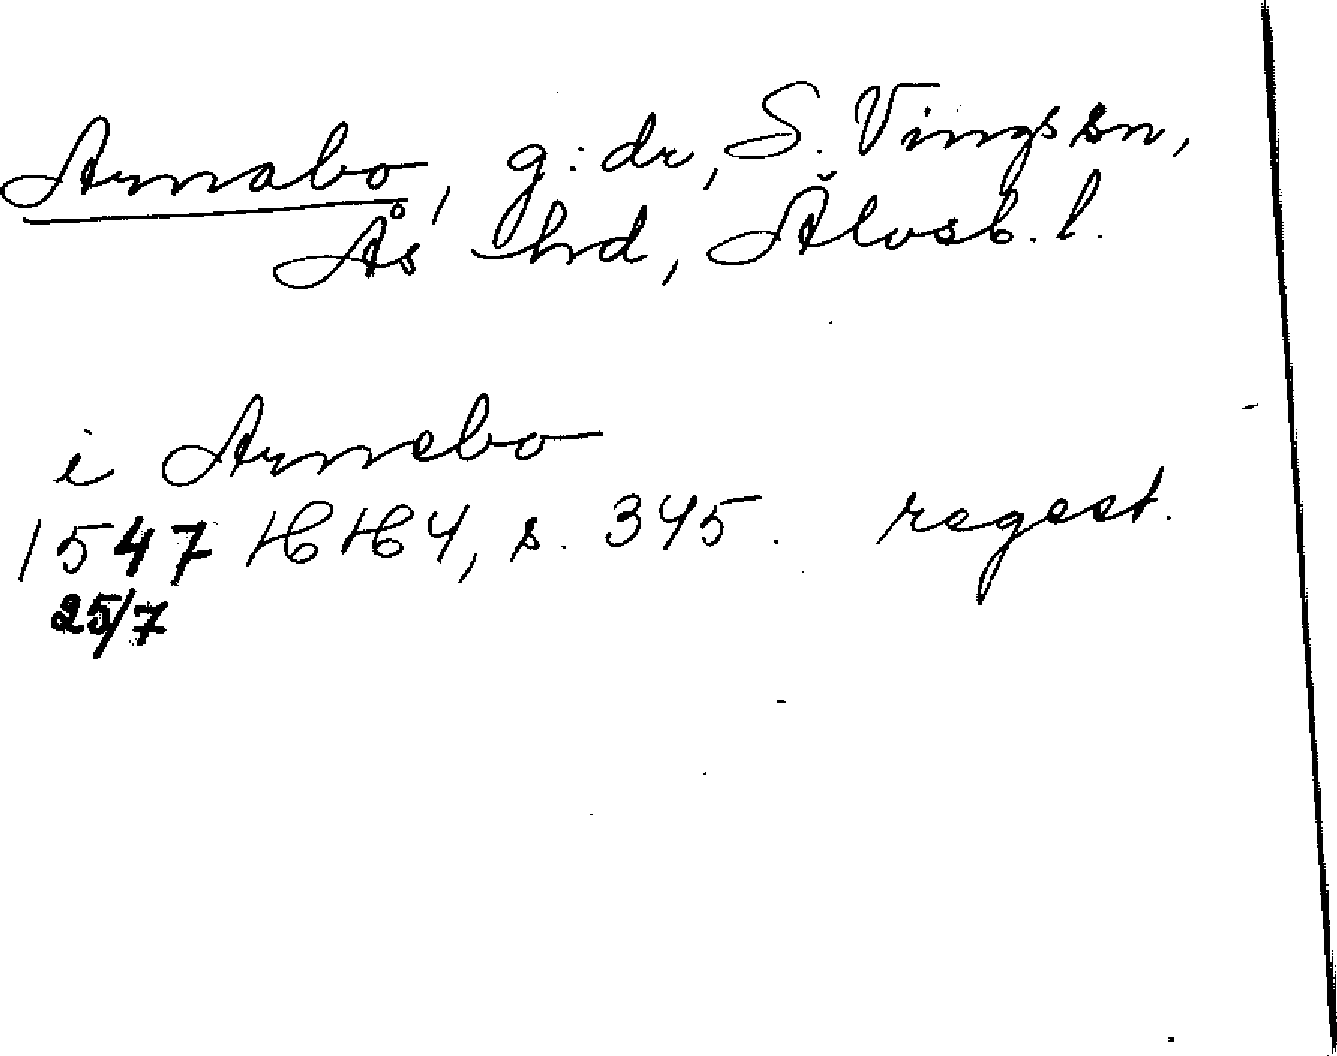 Arnabo, g:dr, S. Vings sn,
Ås hrd, Älvsb. l.
i Arnebo
1547 HH 4, s. 345. regest.
25/7